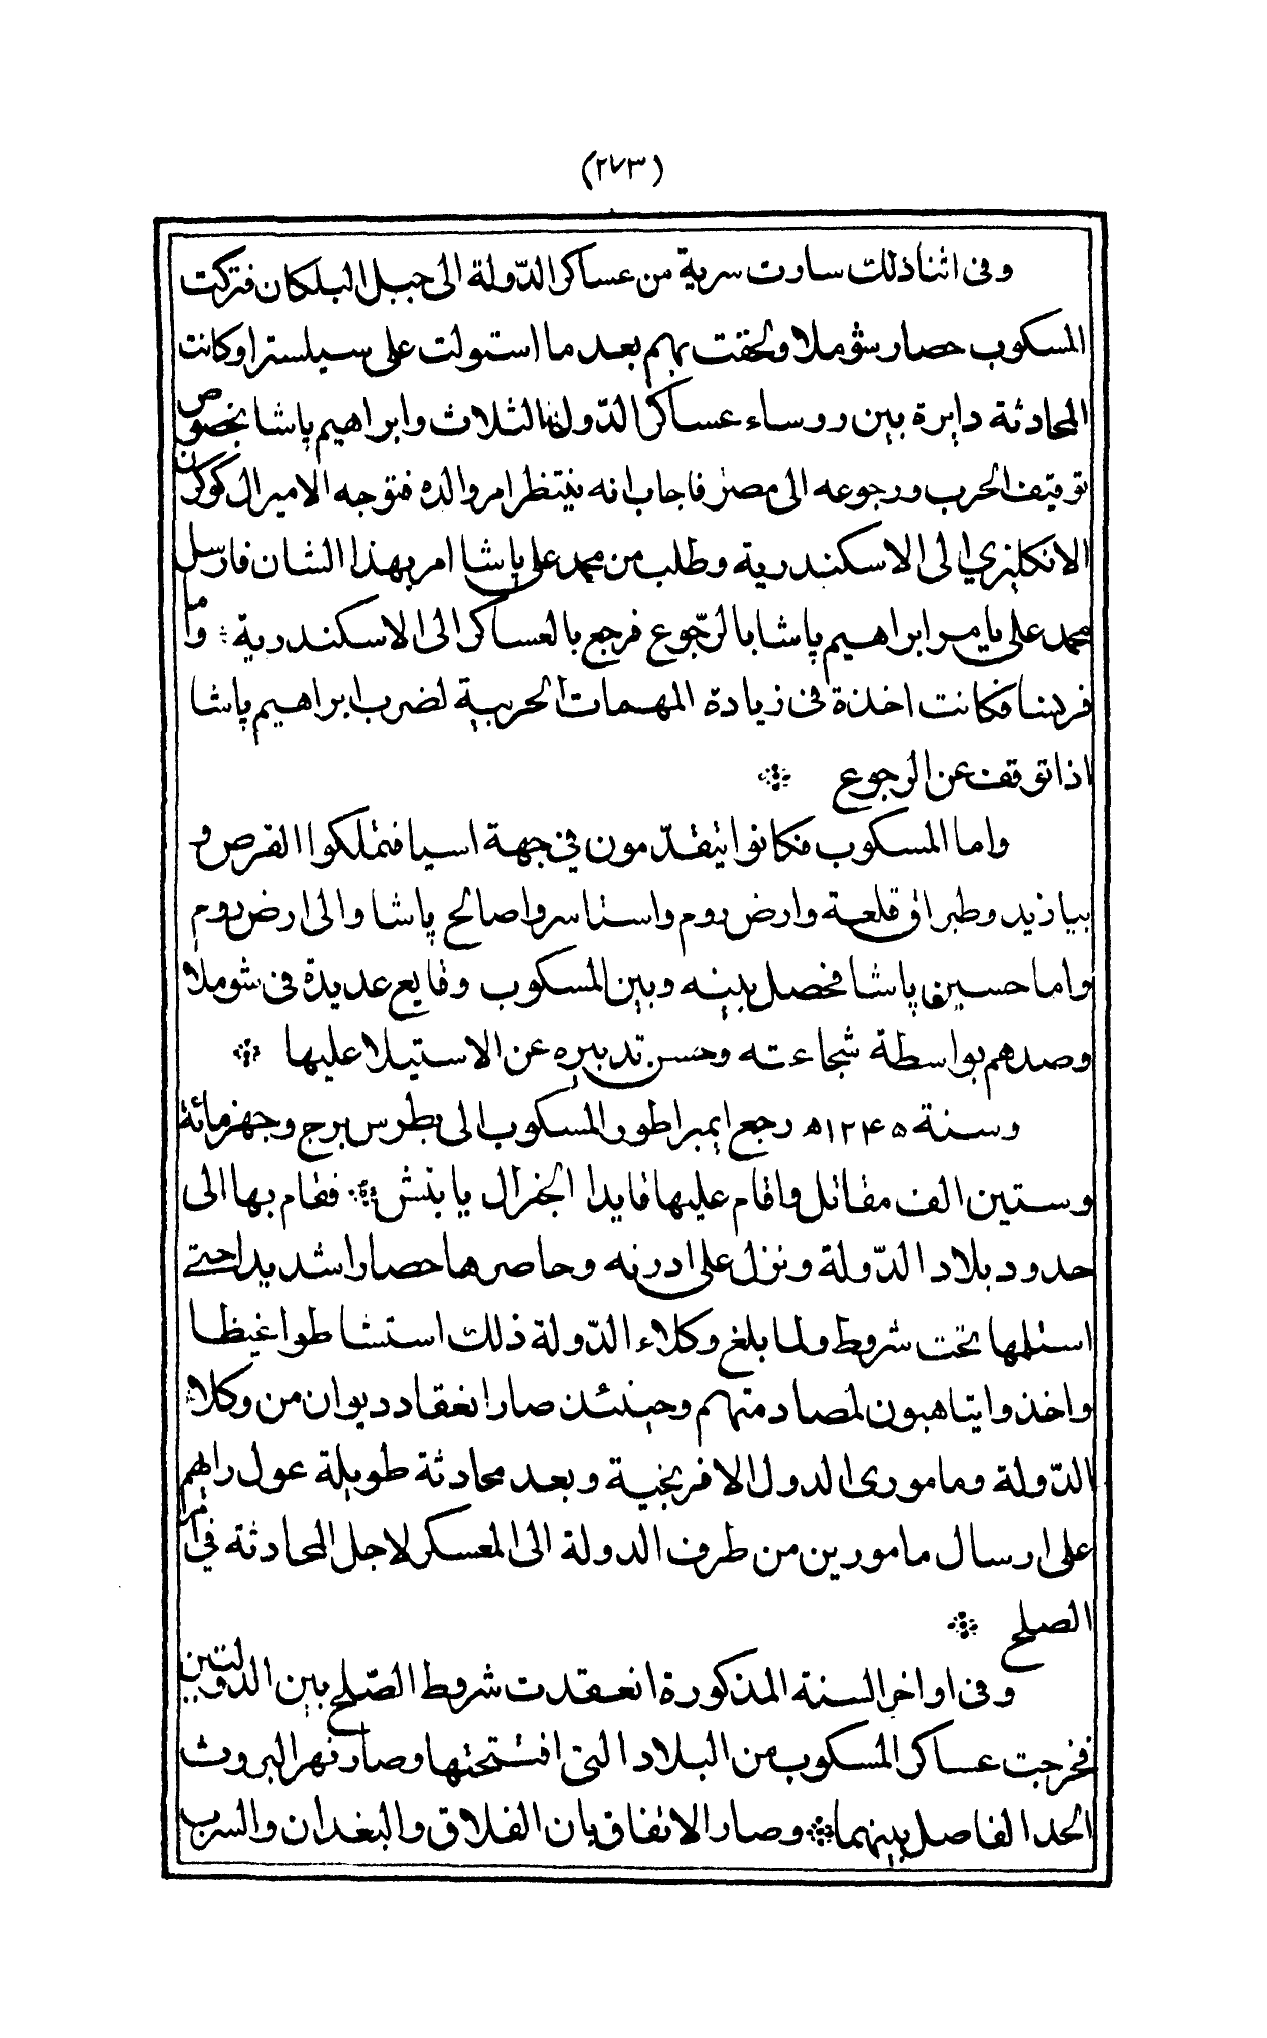 (٢٧٣)
وفى اثنا ذلك ساوت سرية من عساكر الدّولة الى جبل البلكان فتركت
المسكوب حصار شوملا ولحقت بهم بعد ما استولت على سيلسترا وكانت
المحادثة دايرة بين روساء عساكر الدّولة الثلاث وابراهيم پاشا بخصوص
توقيف الحرب ورجوعه الى مصر فاجاب انه ينتظر امر والده فتوجه الاميرال كوكرن
الانكليزي الى الاسكندرية وطلب من محمد على پاشا امر بهذا الشان فارسل
محمد على يامر ابراهيم پاشا بالرّجوع فرجع بالعساكر الى الاسكندرية ؞ واما
فرنسا فكانت اخذة فى زيادة المهمات الحربية لضرب ابراهيم پاشا
اذا توقف عن الرجوع ؞
واما المسكوب فكانوا يتقدّمون فى جهة اسيا فتملكوا القرص و
بيازيد وطبراق قلعة وارض روم واستاسروا صالح پاشا والى ارض روم
واما حسين پاشا فحصل بينه وبين المسكوب وقايع عديدة فى شوملا
وصدهم بواسطة شجاعته وحسن تدبيره عن الاستيلا عليها ؞
وسنة ١٢٤٥ﻫ رجع ايمبراطور المسكوب الى بطرس برج وجهز مائة
وستين الف مقاتل واقام عليها قايدا الجنرال يابنتش ؞ فقام بها الى
حدود بلاد الدّولة ونزل على ادرنه وحاصرها حصارا شديدا حتى
استلمها تحت شروط ولما بلغ وكلاء الدّولة ذلك استشاطوا غيظا
واخذوا يتاهبون لمصادمتهم وحينئذ صار انعقاد ديوان من وكلاء
الدّولة ومامورى الدول الافرنجية وبعد محادثة طويلة عول رايهم
على ارسال مامورين من طرف الدولة الى المعسكر لاجل المحادثة في امر
الصلح ؞
وفى اواخر السنة المذكورة انعقدت شروط الصّلح بين الدولتين
فخرجت عساكر المسكوب من البلاد التى افتتحتها وصار نهر البروث
الحد الفاصل بينهما ؞ وصار الاتفاق بان الفلاق والبغدان والسرب